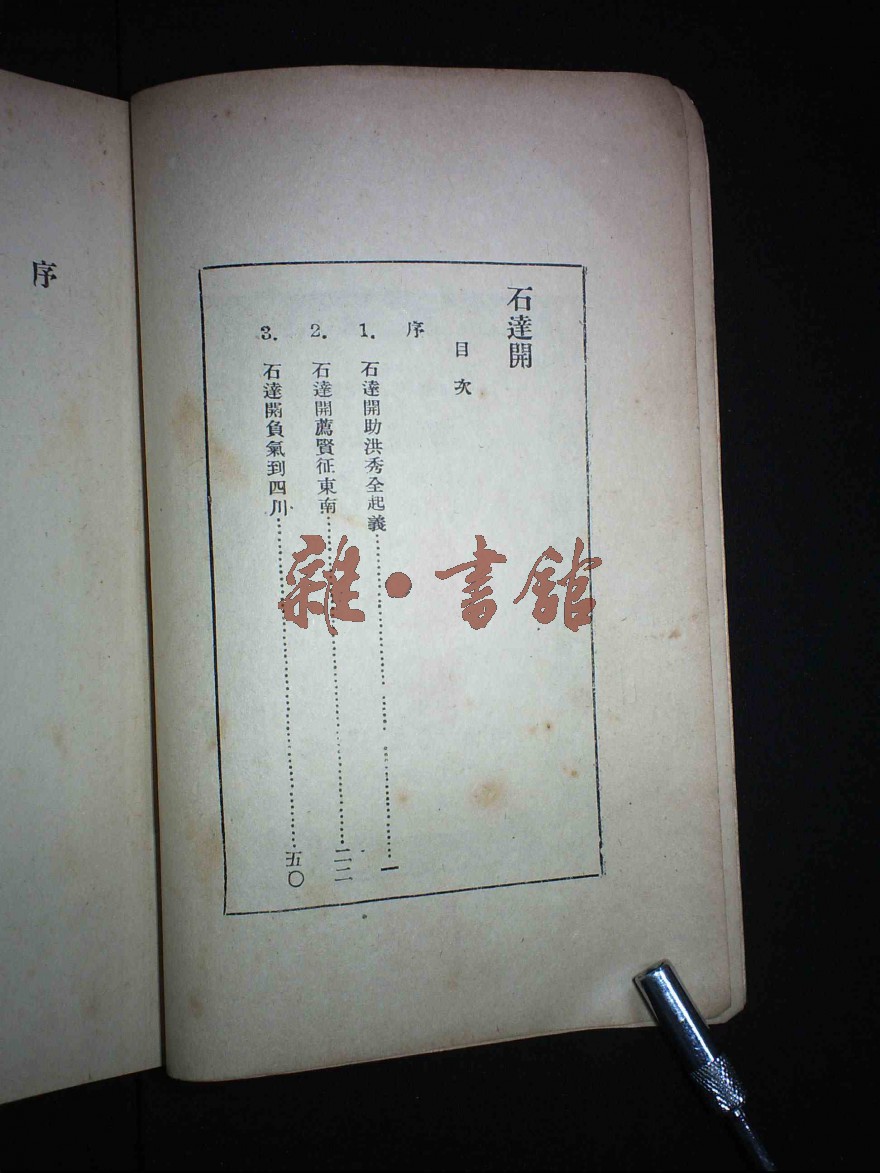 石達開
目次
序
1. 石達開助洪秀全起義…………………一
2. 石達開薦賢征東南…………………二二
3. 石達開負氣到四川…………………五〇
序
雜·書館